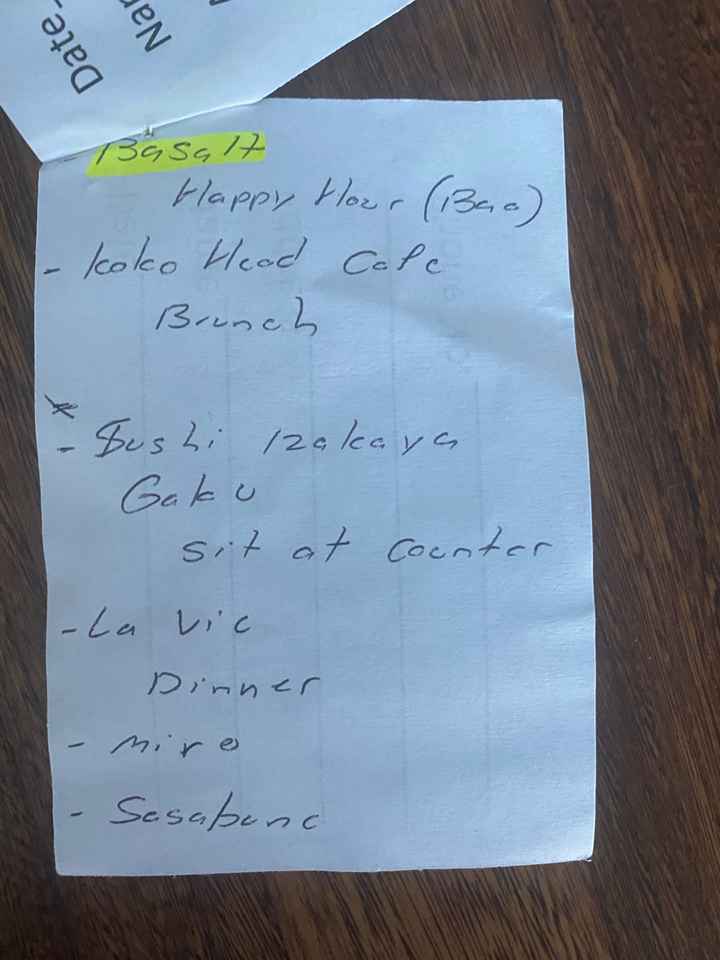 Date
Na
- Basalt
Happy Hour (Bao)
- Koko Head Cafe
Brunch
- Sushi Izakaya
Gaku
sit at counter
- La Vie
Dinner
- Miro
- Sasabune